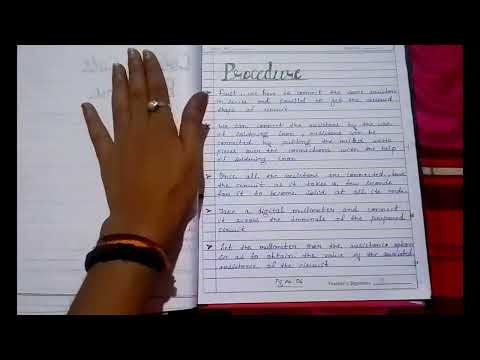 Procedure
First, we have to connect the some resistors
in series and parallel to get the desired
shape of circuit
We can connect the resistors by the use
of soldering iron, resistors can be
connected by putting the melted
pieces over the connections with the help
of soldering iron
Once all the resistors are connected, leave
the circuit as it takes a few seconds
for it to become solid at all its nodes
Take a digital multimeter and connect
it across the terminals of the prepared
circuit
Set the multimeter over the resistance
so as to obtain the value of the
resistance of the circuit
Pg no. 06
Teacher's Signature